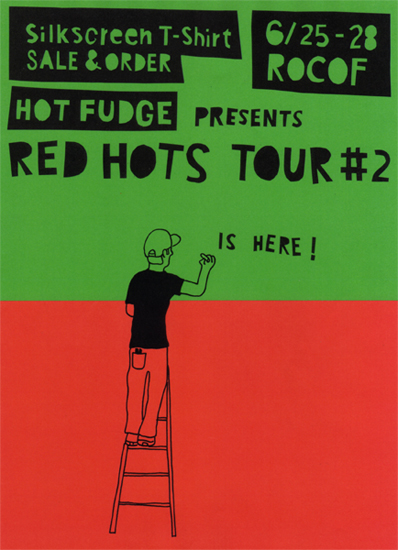 Silkscreen T-Shirt
SALE & ORDER
6/25-28
ROCOF
HOT FUDGE PRESENTS
RED HOTS TOUR #2
IS HERE!